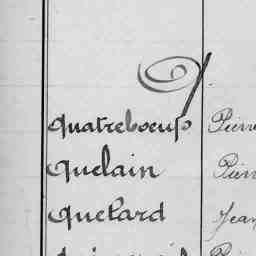 Q
Quatreboeufs Pierre
Quelain Pierre
Quelard Jean